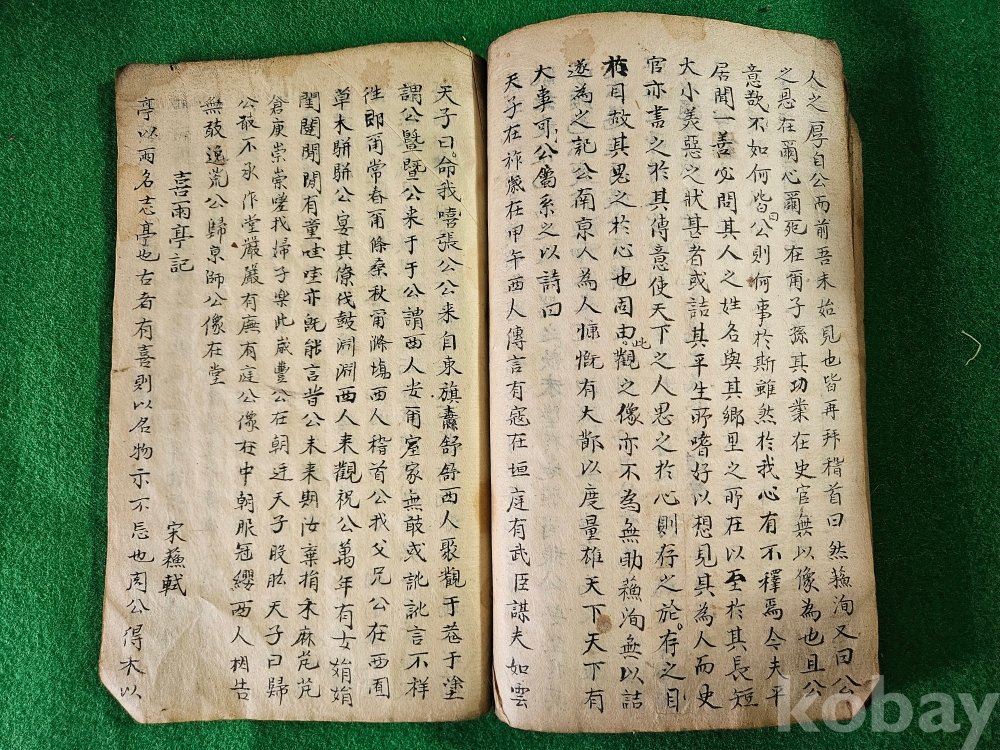 人之厚自公而前吾未始見也皆再拜稽首曰然蘓洵又曰公
之恩在爾心爾死在甭子孫其功業在史官無以像為也且公
意㢤不如何皆曰公則何事於斯雖然於我心有不釋焉今夫平
居聞一善必問其人之姓名與其鄉里之所在以至於其長短
大小美惡之狀甚者或詰其平生所嗜好以想見其為人而史
官亦書之於其傳意使天下之人思之於心則存之於存之目
於目故其思之於心也固由此觀之像亦不為無助蘓洵無以詰
遂為之記公南京人為人慷慨有大節以度量雄天下天下有
大事可公屬系之以詩曰
天子在祚歲在甲午西人傳言有寇在垣庭有武臣謀夫如雲
天子曰命我嘻張公公来自東旗纛舒舒西人聚觀于巷于塗
謂公曁曁公来于于公謂西人安甭室家無敢或訛訛言不祥
徃即甭常春甭條桑秋甭滌場西人稽首公我父兄公在西囿
草木駢駢公宴其僚伐鼓淵淵西人来觀祝公萬年有女娟娟
閨闥閒閒有童哇哇亦旣能言昔公未来期汝棄捐禾麻芃芃
倉庾崇崇嗟我婦子樂此歲豊公在朝廷天子股肱天子曰歸
公敢不承作堂嚴嚴有廡有庭公像在中朝服冠纓西人相告
無敢逸荒公歸京師公像在堂
喜雨亭記
宋蘓軾
亭以雨名志喜也古者有喜則以名物示不忘也周公得禾以
kobay